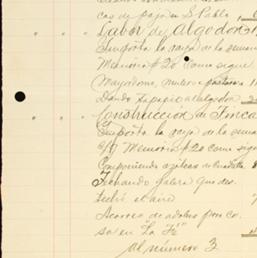 cas de paja en S. Pablo
Labor de Algodon
Importa la raya de la semana
Memoria #20 como sigue
Mayordomo, mulero y pastores
Dando tapapio al algodon
Construccion de Finca
Importa la raya de la semana
S/g Memoria #20 como sigue
Componiendo azoteas de
Techando galera que des
techó el aire
Acarreo de adobes para ca
sa en "La Fé"
Al número 3